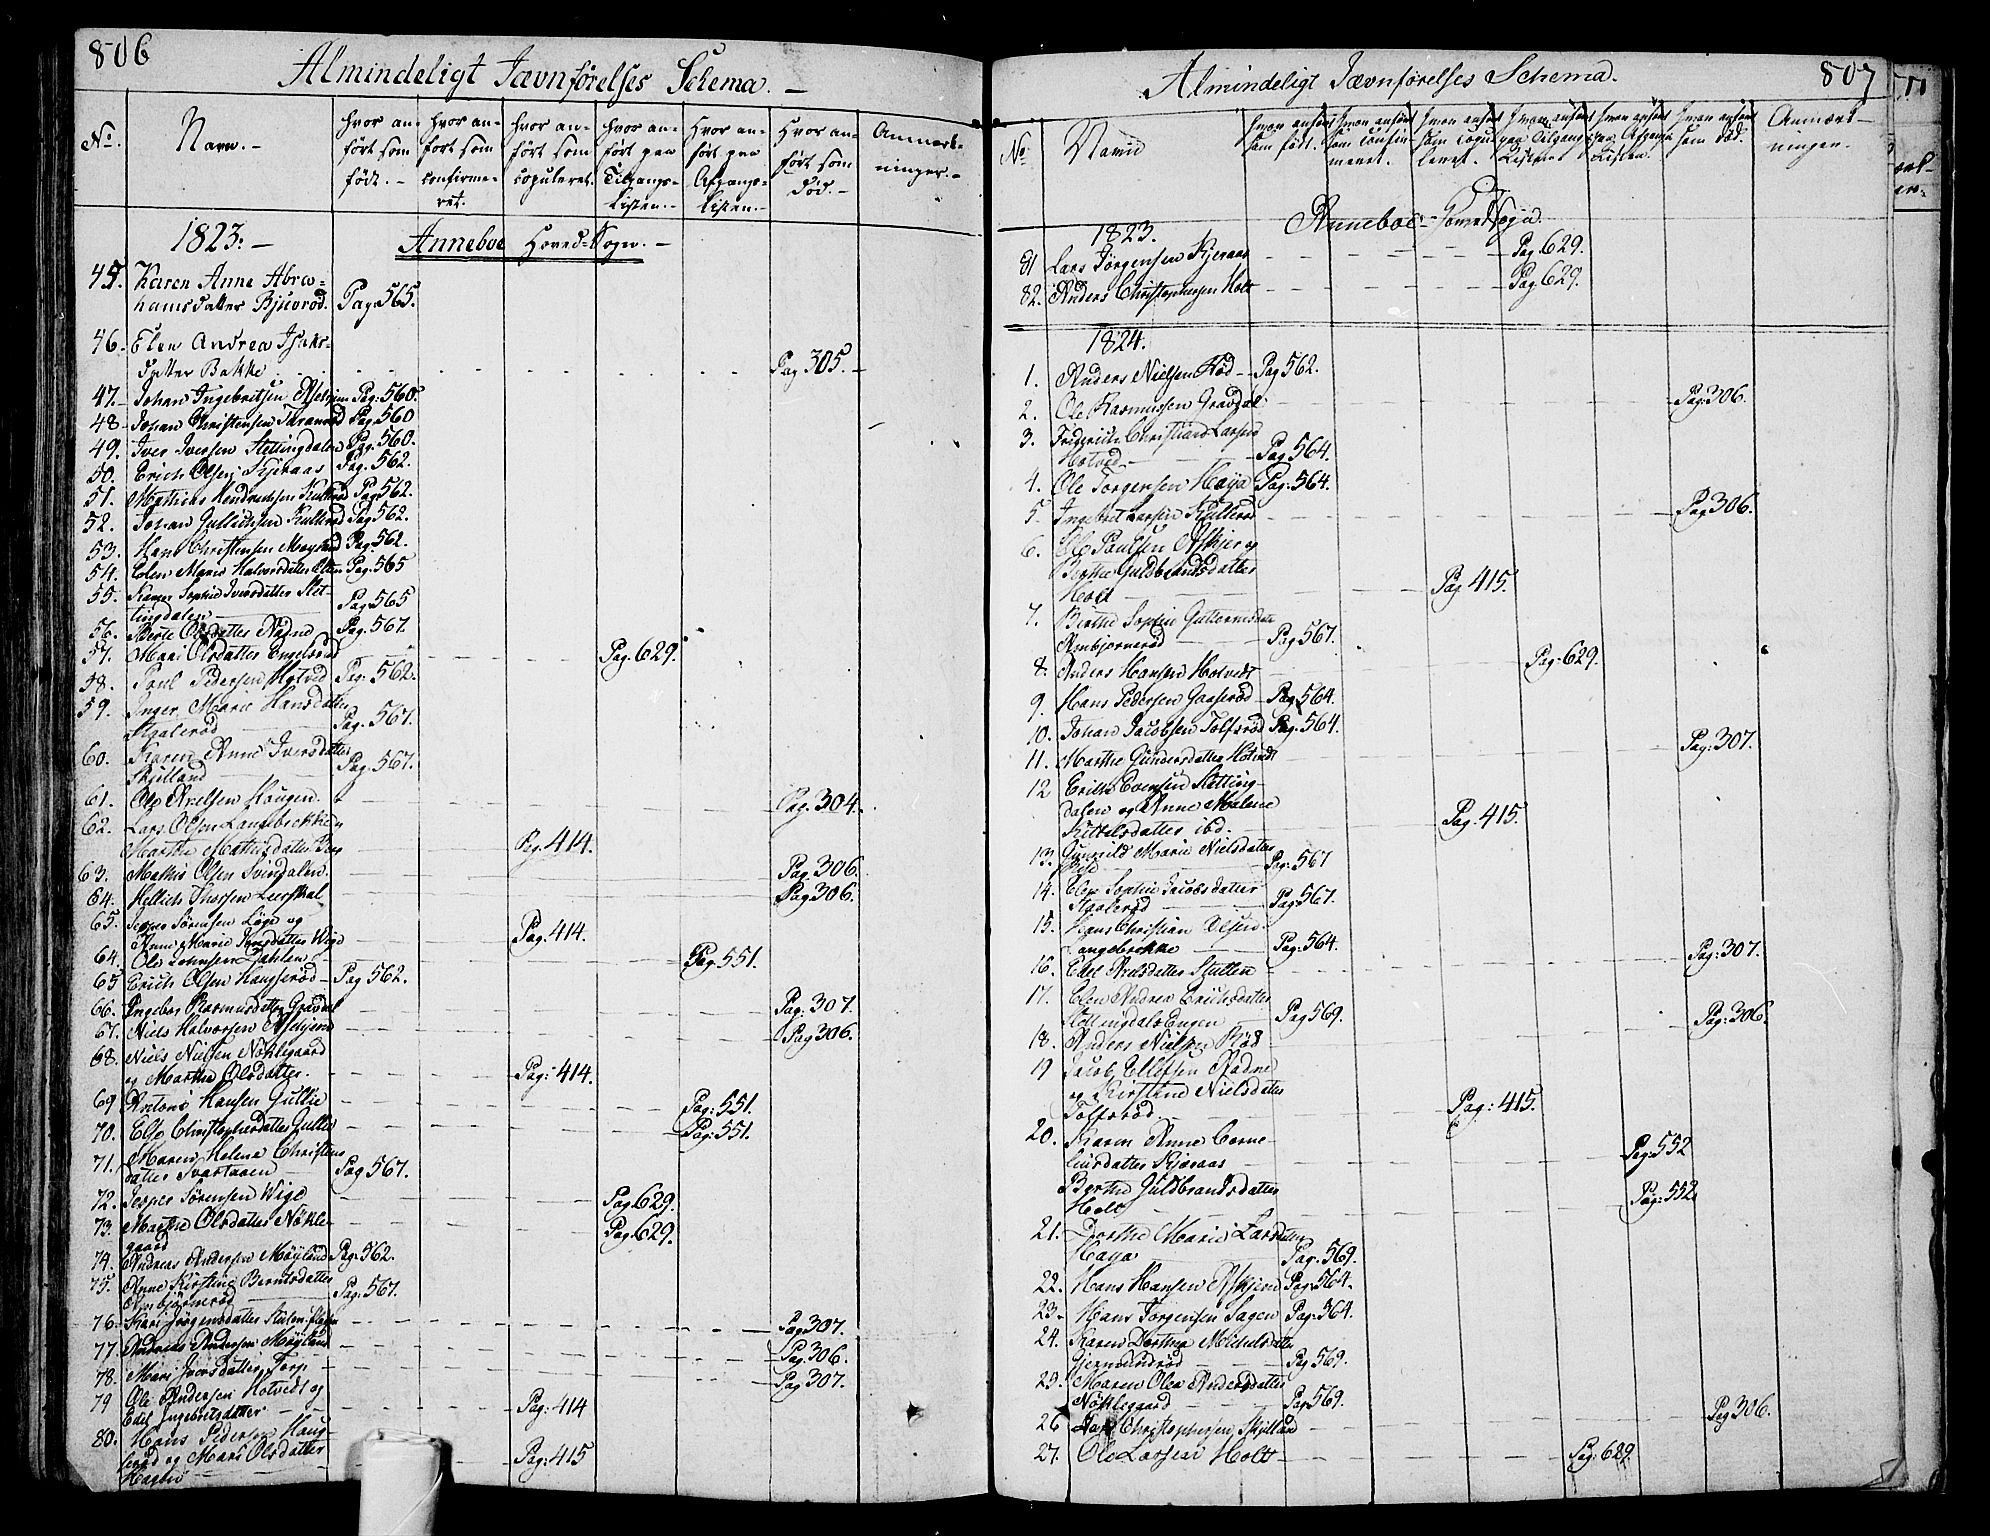 806
Almindeligt Jævnførelses Schema. —
No. Navn. — Hvor an- ført som født. — Hvor an- ført som confirme- ret. Hvor an- ført som copuleret. Hvor an- ført paa Tilgangs- Listen. — Hvor an- ført paa Afgangs- Listen. — Hvor an- ført som død. — Anmærk- ninger. —
1823. — Anneboe Hoved-Sogn. —
45. Karen Anne Abra-
hamsdatter Bjuerød. Pag. 565.
46. Elen Andrea Isaks-
datter Bakke Pag 305. —
47. Johan Ingebritsen Askjem Pag. 560.
48. Johan Christensen Taranrød Pag 560
49. Iver Iversen Slettingdalen Pag. 560.
50. Erich Olsen Kjeraas Pag. 562.
51. Mathias Hendrichsen Kullerød Pag. 562.
52. Johan Gullichsen Kullerød Pag 562.
53. Hans Christensen Møyland Pag. 562.
54. Elen Marie Halvorsdatter Pag. 565
55. Karen Sophie Iversdatter Slet-
tingdalen Pag. 565
56. Berte Olsdatter Rødne Pag. 567.
57. Mari Olsdatter Engelsrød Pag. 629.
58. Poul Pedersen Hotved Pag. 562.
59. Inger Marie Hansdatter
Staalerød Pag. 567.
60. Karen Anne Iversdatter
Skjelland Pag. 567.
61. Ole Axelsen Haugen. Pag. 304.
62. Lars Olsen Langebrekke og
Marthe Mathisdatter Pag. 414.
63. Mathis Olsen Svindalen. Pag. 306.
64. Hellich Thorsen Pag 306.
65. Jesper Sørensen Løge og
Anne Marie Jensdatter Wige Pag. 414.
64. Ole Johnsen Dahlen Pag. 551.
65 Erich Olsen Haugserød Pag 562.
66. Ingebor Rasmusdatter Gravdal Pag. 307.
67. Niels Halvorsen Askjem Pag 306.
68. Niels Nielsen Nøklegaard
og Marthe Olsdatter. Pag: 414.
69 Antoni Hansen Gullie Pag: 551.
70. Else Christophersdatter Gullie Pag: 551.
71. Maren Helene Christens
datter Svartaaen Pag 567.
72. Jesper Sørensen Wige Pag 629.
73. Marthe Olsdatter Nøkle-
gaard Pag. 629.
74. Andreas Andersen Møyland Pag. 562.
75. Anne Kirstine Berntsdatter
Ambjørnerød Pag. 567.
76. Kari Jørgensdatter Pag 307.
77. Andreas Andersen Møyland Pag. 306.
78. Mari Iversdatter Torp Pag 307.
79 Ole Andersen Hotvedt og
Edel Ingebritsdatter Pag: 414
80. Hans Pedersen Haug-
serød og Mari Olsdatter
Pag: 415
Almindeligt Jævnførelses Schema.
807
No. Navne Hvor anført som født. Hvor anført som confir- meret. Hvor anført som copu- leret. Hvor anført paa Tilgangs Listen. Hvor anført paa Afgangs Listen. Hvor anført som død. Anmærk- ningen.
Anneboe-Hoved Sogn.
1823.
81 Lars Jørgensen Kjeraas Pag 629.
82. Anders Christophersen Holt Pag 629.
1824.
1. Anders Nielsen Rød Pag 562.
2. Ole Rasmussen Gravdal Pag. 306.
3. Friderich Christian Larsen
Hotved Pag 564.
4. Ole Jørgensen Haya Pag: 564.
5. Ingebret Larsen Kullerød Pag 306.
6. Ole Paulsen Askjer og
Birthe Guldbrandsdatter
Holt Pag 415.
7. Birthe Sophie Guttormsdatter
Ambjørnerød Pag 567.
8. Anders Hansen Hotvedt Pag. 629.
9. Hans Pedersen Gaaserød Pag. 564.
10. Johan Jacobsen Tolfsrød Pag. 564.
11. Marthe Gundersdatter Hotvedt Pag. 307.
12 Erich Evensen Sletting-
dalen og Anne Malene
Kittelsdatter ibd. Pag. 415.
13. Gunnild Marie Nielsdatter
Pag: 567
14. Elen Sophie Jacobsdatter
Staalerød Pag: 567.
15. Hans Christian Olsen
Langebrekke Pag: 564.
16. Edel Axelsdatter Skullen Pag: 307.
17. Elen Andrea Erichsdatter
SlettingdalsEngen Pag 569.
18. Anders Nielsen Rød Pag: 306.
19 Jacob Ellefsen Rødne
og Kirstine Nielsdatter
Tolfsrød Pag: 415.
20. Karen Anne Corne-
liusdatter Kjæraas Pag: 552
Berthe Guldbrandsdatter
Holt Pag: 552.
21. Dorthe Marie Larsdatter
Haya Pag. 569.
22. Hans Hansen Askjem Pag. 564.
23. Hans Jørgensen Sagen Pag: 564.
24. Karen Dorthea Michelsdatter
Gjermundrød Pag. 569.
25. Maren Olea Andersdatter
Nøklegaard Pag 569.
26 Lars Christophersen Skjelland Pag 306.
27. Ole Larsen Holt Pag: 629.